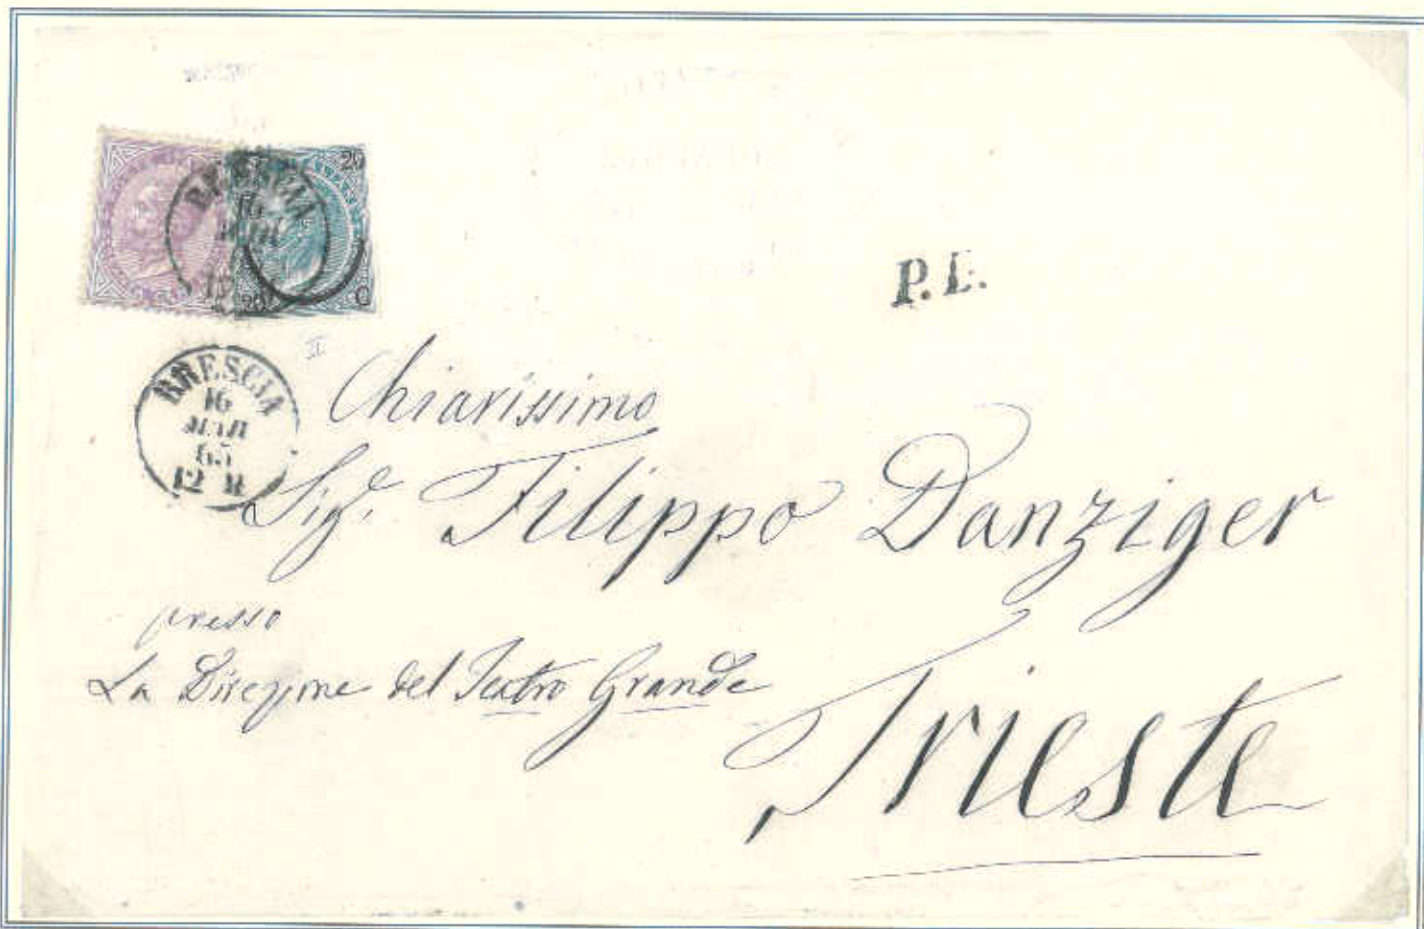 BRESCIA
16
MAR
20
20
C
P.D.
BRESCIA
16
MAR
65
12 M
II
Chiarissimo
Sigr. Filippo Danziger
presso
La Direzione del Teatro Grande
Trieste